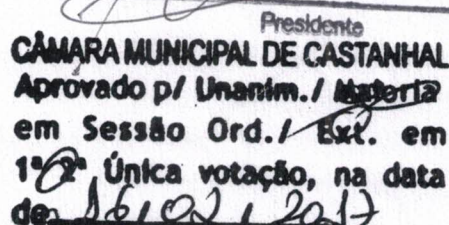 Presidente
CÂMARA MUNICIPAL DE CASTANHAL
Aprovado p/ Unanim. / Maioria
em Sessão Ord. / Ext. em
1ª 2ª Única votação, na data
de 16, 02, 2017